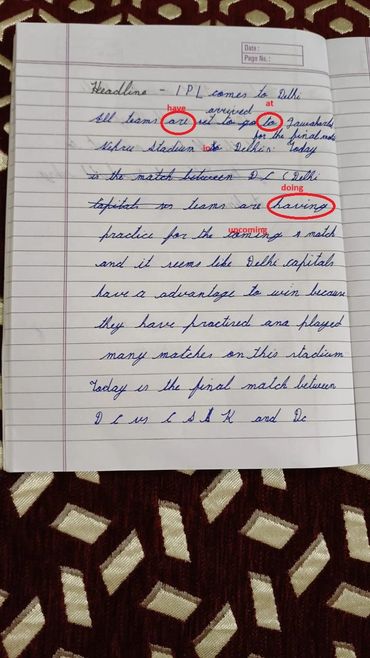 Date :
Page No. :
Headline - IPL comes to Delhi
have arrived at
All teams are set to go to Jawaharla
for the final mate
Nehru Stadium in Delhi. Today
is the match between D C (Delhi
doing
Capitals vs teams are having
upcoming
practice for the coming match
and it seems like Delhi capitals
have a advantage to win because
they have practised and played
many matches on this stadium
Today is the final match between
D C vs C S K and Dc